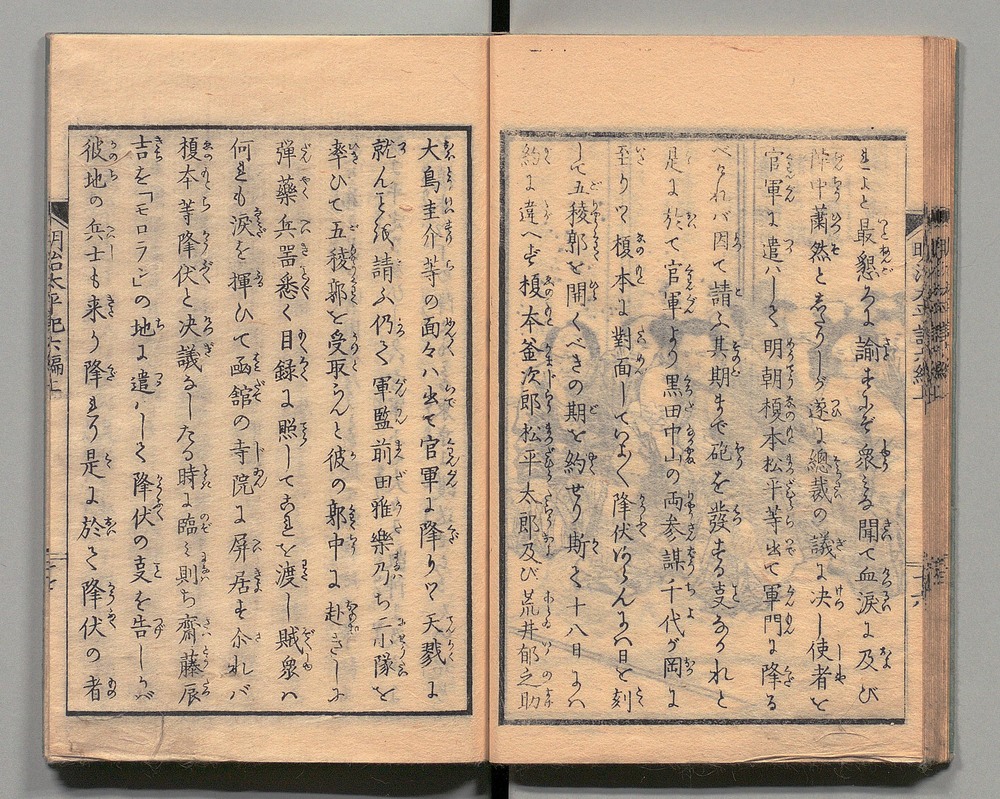 最懇ろに諭すにぞ衆みな聞て血涙に及び
陣中蕭然となりしが遂に總裁の議に决し使者を
官軍に遣ハして明朝榎本松平等出て軍門に降る
べけれバ因て請ふ其期まで砲を發する叓なかれと
是に於て官軍より黒田中山の両参謀千代が岡に
至りて榎本に對面していよ〱降伏ならんにハ日を刻
して五稜郭を開くべきの期を約せり斯て十八日にハ
約に違へず榎本釜次郎松平太郎及び荒井郁之助
大鳥圭介等の面々ハ出て官軍に降りて天戮に
就んを請ふ仍て軍監前田雅樂乃ち二小隊を
率ひて五稜郭を受取らんと彼の郭中に赴きしに
弾藥兵噐悉く目録に照してこれを渡し賊衆ハ
何れも涙を揮ひて函舘の寺院に屏居す尒れバ
榎本等降伏と决議なしたる時に臨み則ち齋藤辰
吉を「モロラン」の地に遣ハして降伏の叓を告しかバ
彼地の兵士も来り降れり是に於て降伏の者
明治太平記六編上